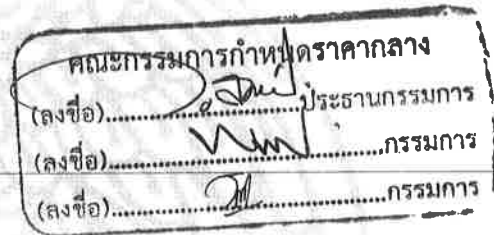 คณะกรรมการกำหนดราคากลาง
(ลงชื่อ)..............................ประธานกรรมการ
(ลงชื่อ)........................................กรรมการ
(ลงชื่อ)........................................กรรมการ